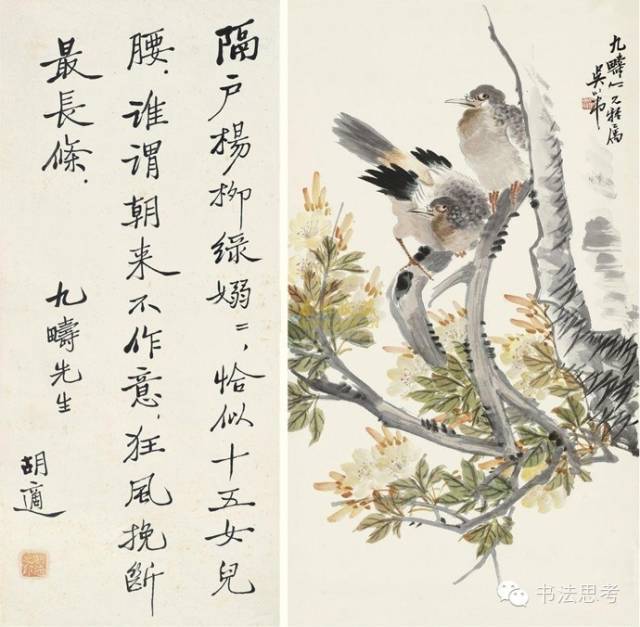 隔户楊柳綠嫋〻，恰似十五女兒
腰．谁謂朝来不作意，狂風挽斷
最長條．
九疇先生
胡適
九疇仁兄雅屬
吴
书法思考